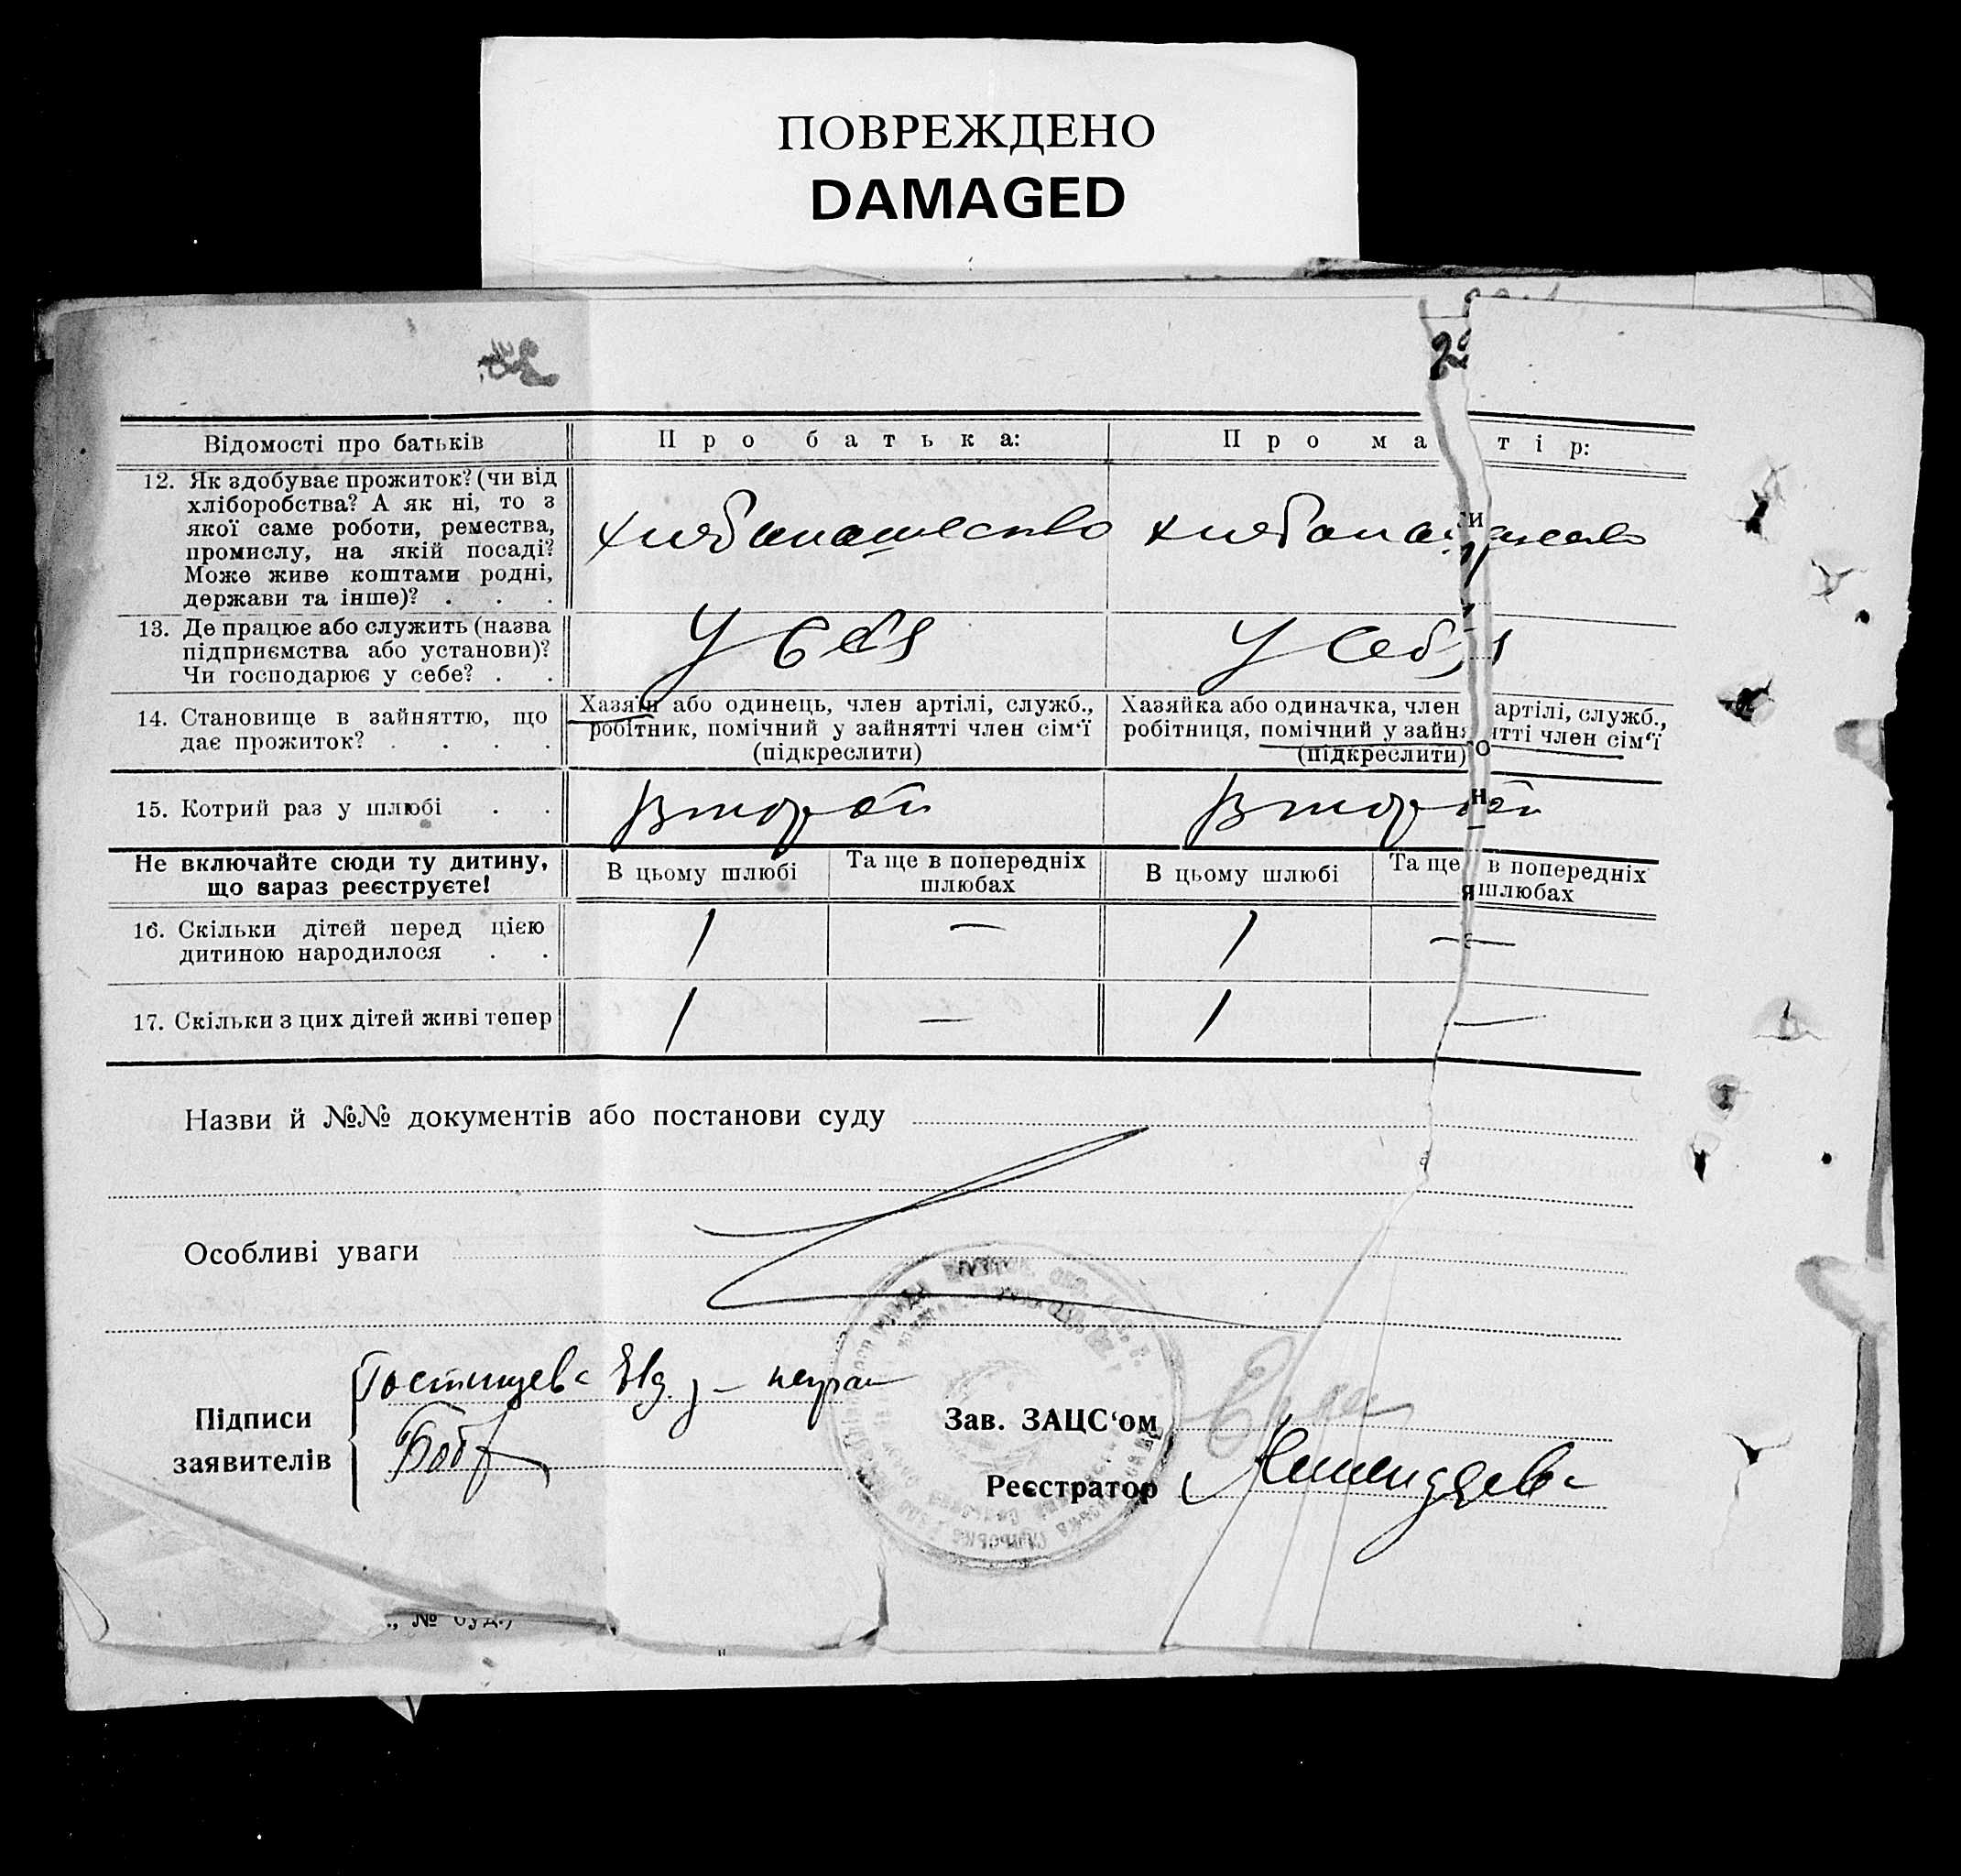 ПОВРЕЖДЕНО
DAMAGED
Відомості про батьків
Про батька:
Про матір:
12. Як здобуває прожиток? (чи від
хліборобства? А як ні, то з
якої саме роботи, ремества,
промислу, на якій посаді?
Може живе коштами родні,
держави та інше)? . . .
хлебопашество
хлебопашество
13. Де працює або служить (назва
підприємства або установи)?
Чи господарює у себе? . .
У себя
У себя
14. Становище в зайняттю, що
дає прожиток? . . . .
Хазяїн або одинець, член артілі, служб.,
робітник, помічний у зайнятті член сім‘ї
(підкреслити)
Хазяйка або одиначка, член артілі, служб.,
робітниця, помічний у зайнятті член сім‘ї
(підкреслити)
15. Котрий раз у шлюбі . .
Второй
Второй
Не включайте сюди ту дитину,
що зараз реєструєте!
В цьому шлюбі
Та ще в попередніх
шлюбах
В цьому шлюбі
Та ще в попередніх
шлюбах
16. Скільки дітей перед цією
дитиною народилося . .
1 — 1 —
17. Скільки з цих дітей живі тепер
1 — 1 —
Назви й №№ документів або постанови суду
Особливі уваги
Підписи
заявителів
Зав. ЗАЦС‘ом
Реєстратор
., № буд.)